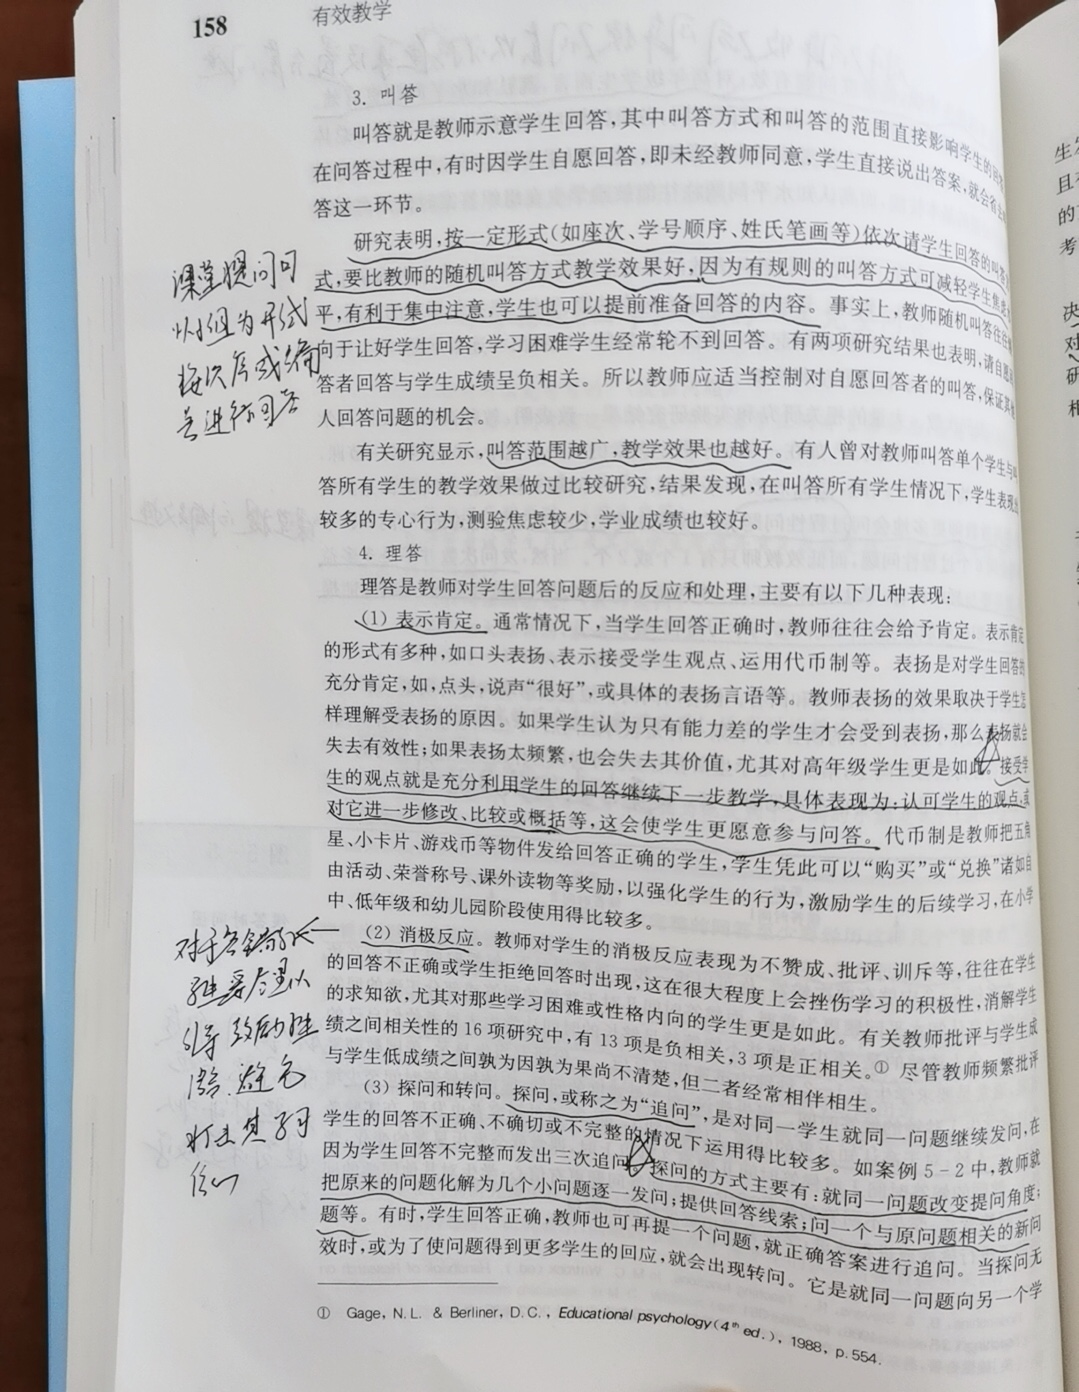 158
有效教学
3. 叫答
叫答就是教师示意学生回答,其中叫答方式和叫答的范围直接影响学生的
在问答过程中,有时因学生自愿回答,即未经教师同意,学生直接说出答案,就会省
答这一环节。
研究表明,按一定形式(如座次、学号顺序、姓氏笔画等)依次请学生回答的叫答
式,要比教师的随机叫答方式教学效果好,因为有规则的叫答方式可减轻学生焦虑
平,有利于集中注意,学生也可以提前准备回答的内容。事实上,教师随机叫答往往
向于让好学生回答,学习困难学生经常轮不到回答。有两项研究结果也表明,请自愿
答者回答与学生成绩呈负相关。所以教师应适当控制对自愿回答者的叫答,保证其
人回答问题的机会。
有关研究显示,叫答范围越广,教学效果也越好。有人曾对教师叫答单个学生与叫
答所有学生的教学效果做过比较研究,结果发现,在叫答所有学生情况下,学生表现出
较多的专心行为,测验焦虑较少,学业成绩也较好。
4. 理答
理答是教师对学生回答问题后的反应和处理,主要有以下几种表现:
(1) 表示肯定。通常情况下,当学生回答正确时,教师往往会给予肯定。表示肯定
的形式有多种,如口头表扬、表示接受学生观点、运用代币制等。表扬是对学生回答的
充分肯定,如,点头,说声“很好”,或具体的表扬言语等。教师表扬的效果取决于学生怎
样理解受表扬的原因。如果学生认为只有能力差的学生才会受到表扬,那么表扬就会
失去有效性;如果表扬太频繁,也会失去其价值,尤其对高年级学生更是如此。接受学
生的观点就是充分利用学生的回答继续下一步教学,具体表现为:认可学生的观点,或
对它进一步修改、比较或概括等,这会使学生更愿意参与问答。代币制是教师把五角
星、小卡片、游戏币等物件发给回答正确的学生,学生凭此可以“购买”或“兑换”诸如自
由活动、荣誉称号、课外读物等奖励,以强化学生的行为,激励学生的后续学习,在小学
中、低年级和幼儿园阶段使用得比较多。
(2) 消极反应。教师对学生的消极反应表现为不赞成、批评、训斥等,往往在学生
的回答不正确或学生拒绝回答时出现,这在很大程度上会挫伤学习的积极性,消解学生
的求知欲,尤其对那些学习困难或性格内向的学生更是如此。有关教师批评与学生成
绩之间相关性的16项研究中,有13项是负相关,3项是正相关。① 尽管教师频繁批评
与学生低成绩之间孰为因孰为果尚不清楚,但二者经常相伴相生。
(3) 探问和转问。探问,或称之为“追问”,是对同一学生就同一问题继续发问,在
学生的回答不正确、不确切或不完整的情况下运用得比较多。如案例5-2中,教师就
因为学生回答不完整而发出三次追问。探问的方式主要有:就同一问题改变提问角度;
把原来的问题化解为几个小问题逐一发问;提供回答线索;问一个与原问题相关的新问
题等。有时,学生回答正确,教师也可再提一个问题,就正确答案进行追问。当探问无
效时,或为了使问题得到更多学生的回应,就会出现转问。它是就同一问题向另一个学
① Gage, N. L. & Berliner, D. C., Educational psychology (4th ed.), 1988, p. 554.
课堂提问可
以小组为形式
按次序或编
号进行回答